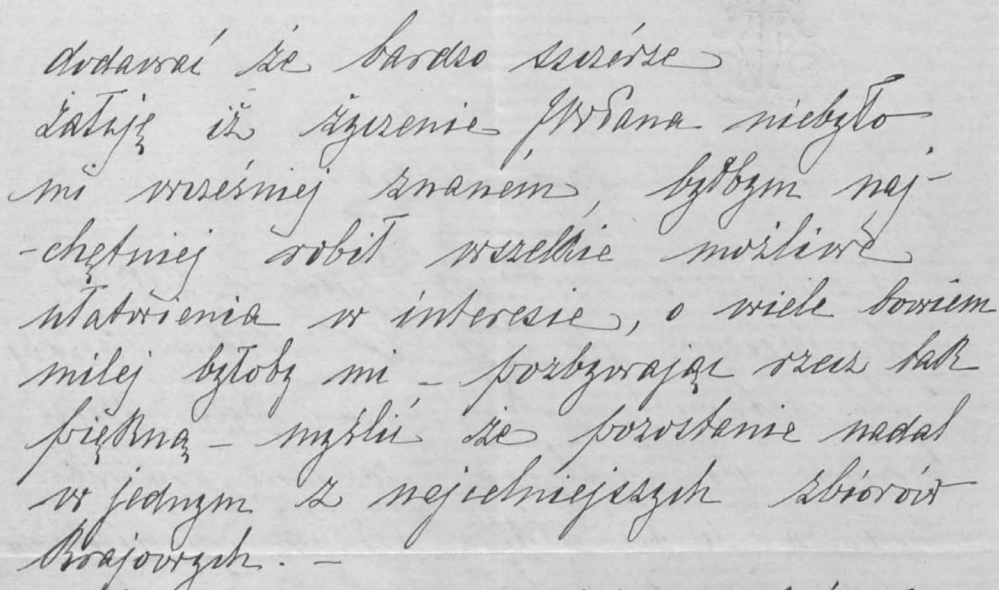 dodawać że bardzo szczérze
żałuję iż życzenie JWPana niebyło
mi wcześniej znaném, byłbym naj-
-chętniej robił wszelkie możliwe
ułatwienia w interesie, o wiele bowiem
milej byłoby mi – pozbywając rzecz tak
piękną – myślić że pozostanie nadal
w jednym z najcelniejszych zbiorów
Krajowych. –